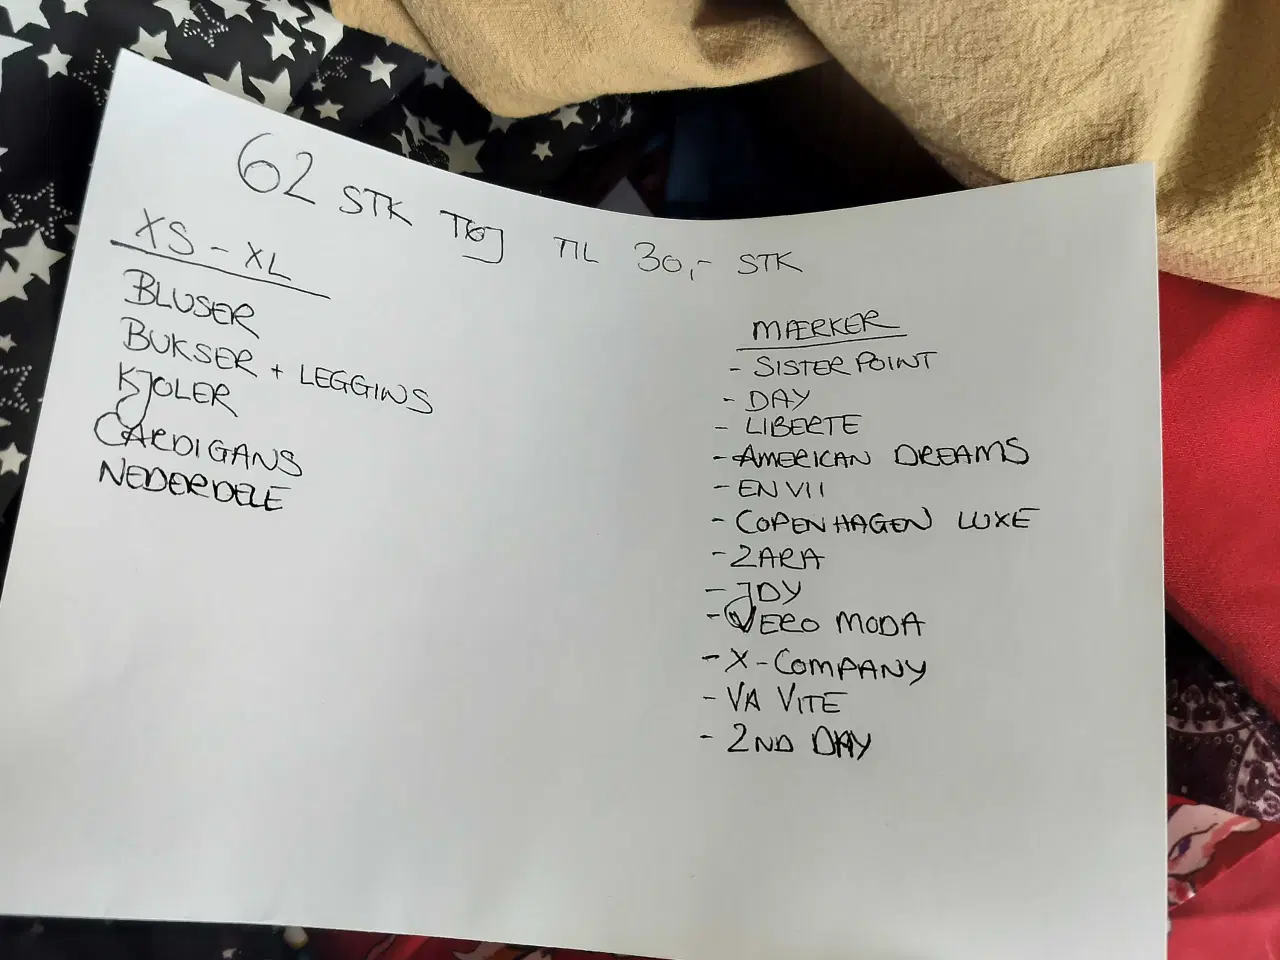 62 STK TØJ TIL 30,- STK
XS - XL
BLUSER
BUKSER + LEGGINS
KJOLER
CARDIGANS
NEDERDELE
MÆRKER
- SISTERPOINT
- DAY
- LIBERTE
- AMERICAN DREAMS
- ENVII
- COPENHAGEN LUXE
- ZARA
- JDY
- VERO MODA
- X-COMPANY
- VA VITE
- 2ND DAY